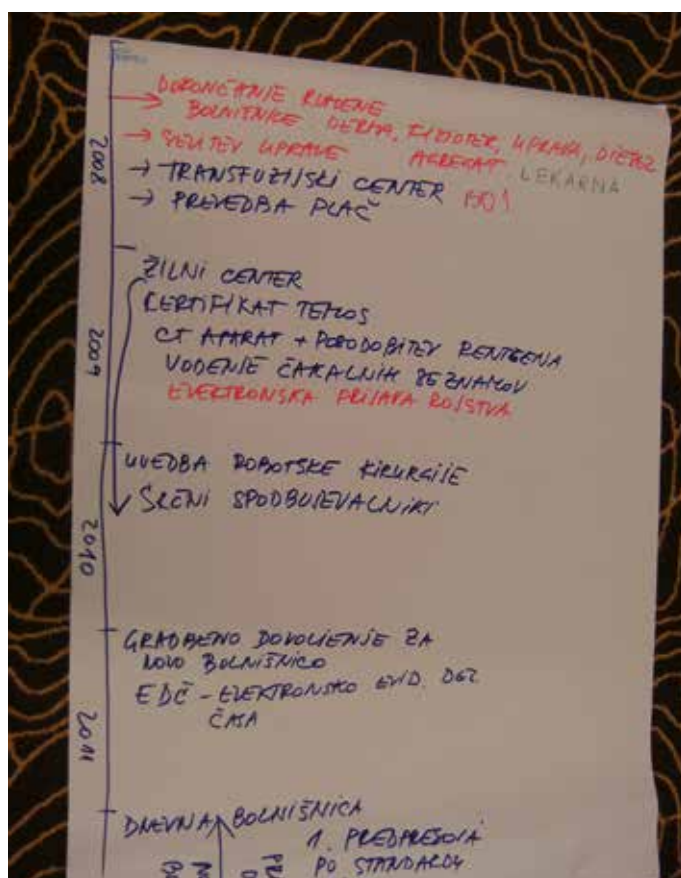 DOKONČANJE RUMENE
BOLNIŠNICE DERMA, FIZIOTER, UPRAVA, DIETEZ
→ SELITEV UPRAVE AGREGAT LEKARNA
2008
→ TRANSFUZIJSKI CENTER
→ PREVEDBA PLAČ
ŽILNI CENTER
CERTIFIKAT TEMOS
2009
CT APARAT + POSODOBITEV RENTGENA
VODENJE ČAKALNIH SEZNAMOV
ELEKTRONSKA PRIJAVA ROJSTVA
UVEDBA ROBOTSKE KIRURGIJE
SRČNI SPODBUJEVALNIKI
2010
GRADBENO DOVOLJENJE ZA
NOVO BOLNIŠNICO
EDČ - ELEKTRONSKO EVID. DEL.
ČASA
2011
DNEVNA BOLNIŠNICA
1. PREDPRESOJA
PO STANDARDU